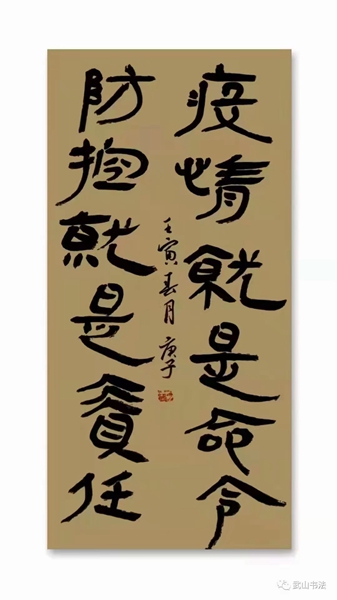 疫情就是命令
防控就是責任
壬寅春月 庚子
武山书法